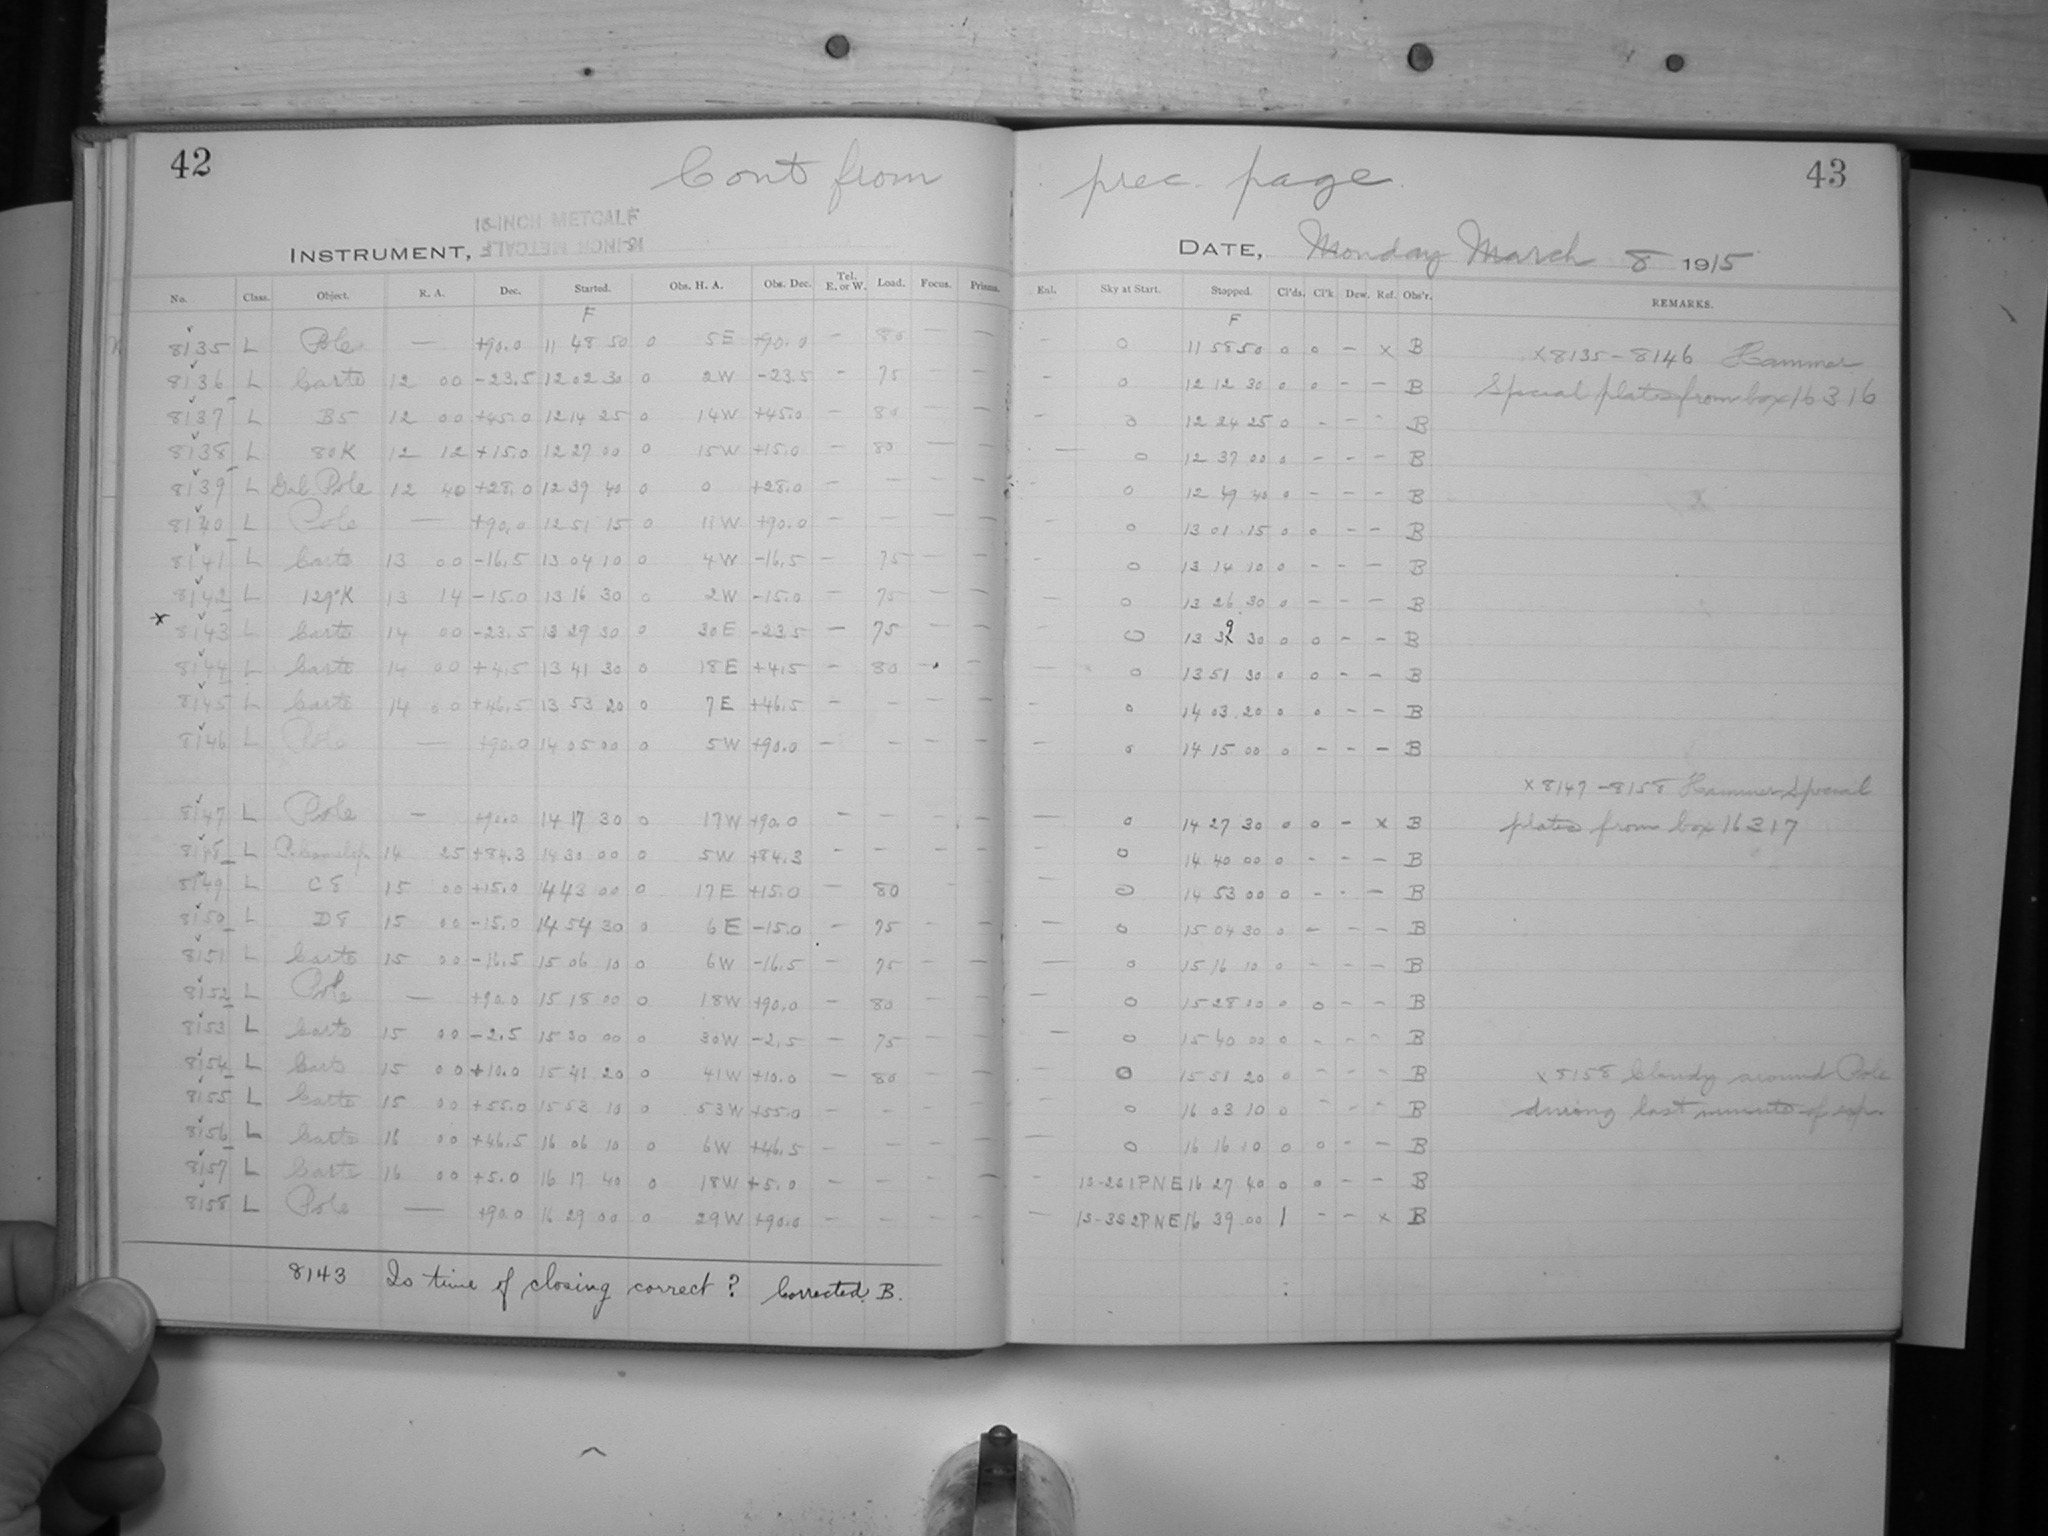 42
Cont from prec. page
43
16-INCH METCALF
INSTRUMENT,
DATE, Monday March 8 1915
No. Class. Object. R. A. Dec. Started. Obs. H. A. Obs. Dec. Tel. E. or W. Load. Focus. Prisms. Enl. Sky at Start. Stopped. Cl'ds. Cl'k Dew. Ref. Obs'r. REMARKS.
F F
8135 L Pole — +90.0 11 48 50 0 5E +90.0 — 80 — — — 0 11 58 50 0 0 — x B x 8135-8146 Hammer
8136 L Carte 12 00 -23.5 12 02 30 0 2W -23.5 — 75 — — — 0 12 12 30 0 0 — — B Special plates from box 16316
8137 L B5 12 00 +45.0 12 14 25 0 14W +45.0 — 80 — — — 0 12 24 25 0 — — — B
8138 L 80K 12 12 +15.0 12 27 00 0 15W +15.0 — 80 — — — 0 12 37 00 0 — — — B
8139 L Gal. Pole 12 40 +28.0 12 39 40 0 0 +28.0 — — — — — 0 12 49 40 0 — — — B
8140 L Pole — +90.0 12 51 15 0 11W +90.0 — — — — — 0 13 01 15 0 0 — — B
8141 L Carte 13 00 -16.5 13 04 10 0 4W -16.5 — 75 — — — 0 13 14 10 0 — — — B
8142 L 129K 13 14 -15.0 13 16 30 0 2W -15.0 — 75 — — — 0 13 26 30 0 — — — B
x 8143 L Carte 14 00 -23.5 13 29 30 0 30E -23.5 — 75 — — — 0 13 39 30 0 0 — — B
8144 L Carte 14 00 +4.5 13 41 30 0 18E +4.5 — 80 — — — 0 13 51 30 0 0 — — B
8145 L Carte 14 00 +46.5 13 53 20 0 7E +46.5 — — — — — 0 14 03 20 0 0 — — B
8146 L Pole — +90.0 14 05 00 0 5W +90.0 — — — — — 0 14 15 00 0 — — — B
x 8147-8158 Hammer Special
8147 L Pole — +90.0 14 17 30 0 17W +90.0 — — — — — 0 14 27 30 0 0 — x B plates from box 16317
8148 L 14 25 +84.3 14 30 00 0 5W +84.3 — — — — — 0 14 40 00 0 — — — B
8149 L C8 15 00 +15.0 14 43 00 0 17E +15.0 — 80 — — 0 14 53 00 0 — — — B
8150 L D8 15 00 -15.0 14 54 30 0 6E -15.0 — 75 — — — 0 15 04 30 0 — — — B
8151 L Carte 15 00 -16.5 15 06 10 0 6W -16.5 — 75 — — — 0 15 16 10 0 — — — B
8152 L Pole — +90.0 15 18 00 0 18W +90.0 — 80 — — — 0 15 28 00 0 0 — — B
8153 L Carte 15 00 -2.5 15 30 00 0 30W -2.5 — 75 — — — 0 15 40 00 0 — — — B
8154 L Carte 15 00 +10.0 15 41 20 0 41W +10.0 — 80 — — — 0 15 51 20 0 — — — B x 8158 Cloudy around Pole
8155 L Carte 15 00 +55.0 15 53 10 0 53W +55.0 — — — — — 0 16 03 10 0 — — — B during last minute of exp.
8156 L Carte 16 00 +46.5 16 06 10 0 6W +46.5 — — — — — 0 16 16 10 0 0 — — B
8157 L Carte 16 00 +5.0 16 17 40 0 18W +5.0 — — — — — 1S-2S1PNE 16 27 40 0 0 — — B
8158 L Pole — +90.0 16 29 00 0 29W +90.0 — — — — — 1S-3S2PNE 16 39 00 1 — — x B
8143 Is time of closing correct? Corrected. B.